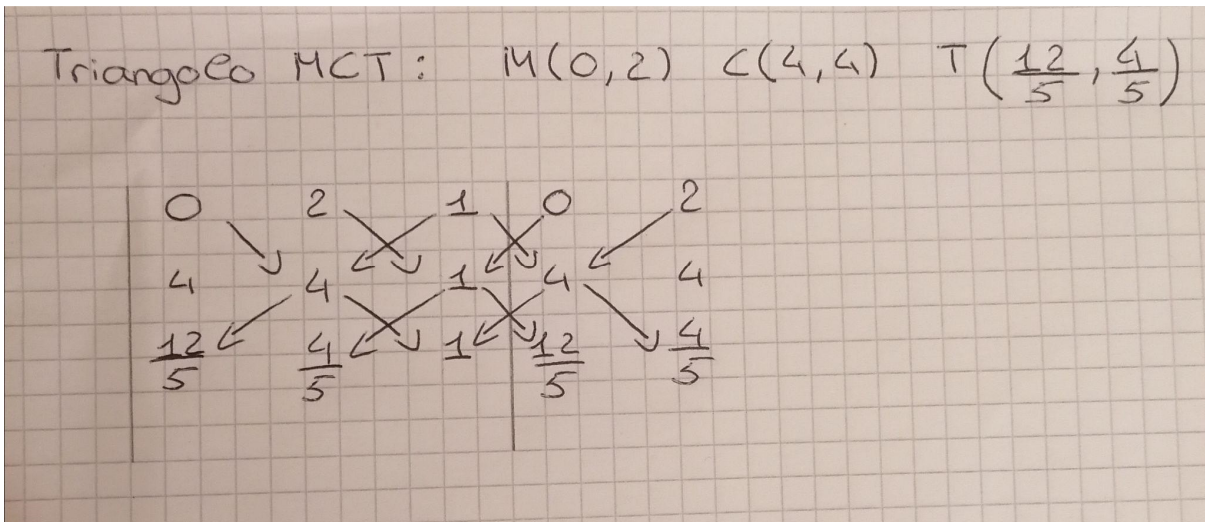 Triangolo MCT: M(0,2) C(4,4) T(12/5, 4/5)
0 2 1 0 2
4 4 1 4 4
12/5 4/5 1 12/5 4/5